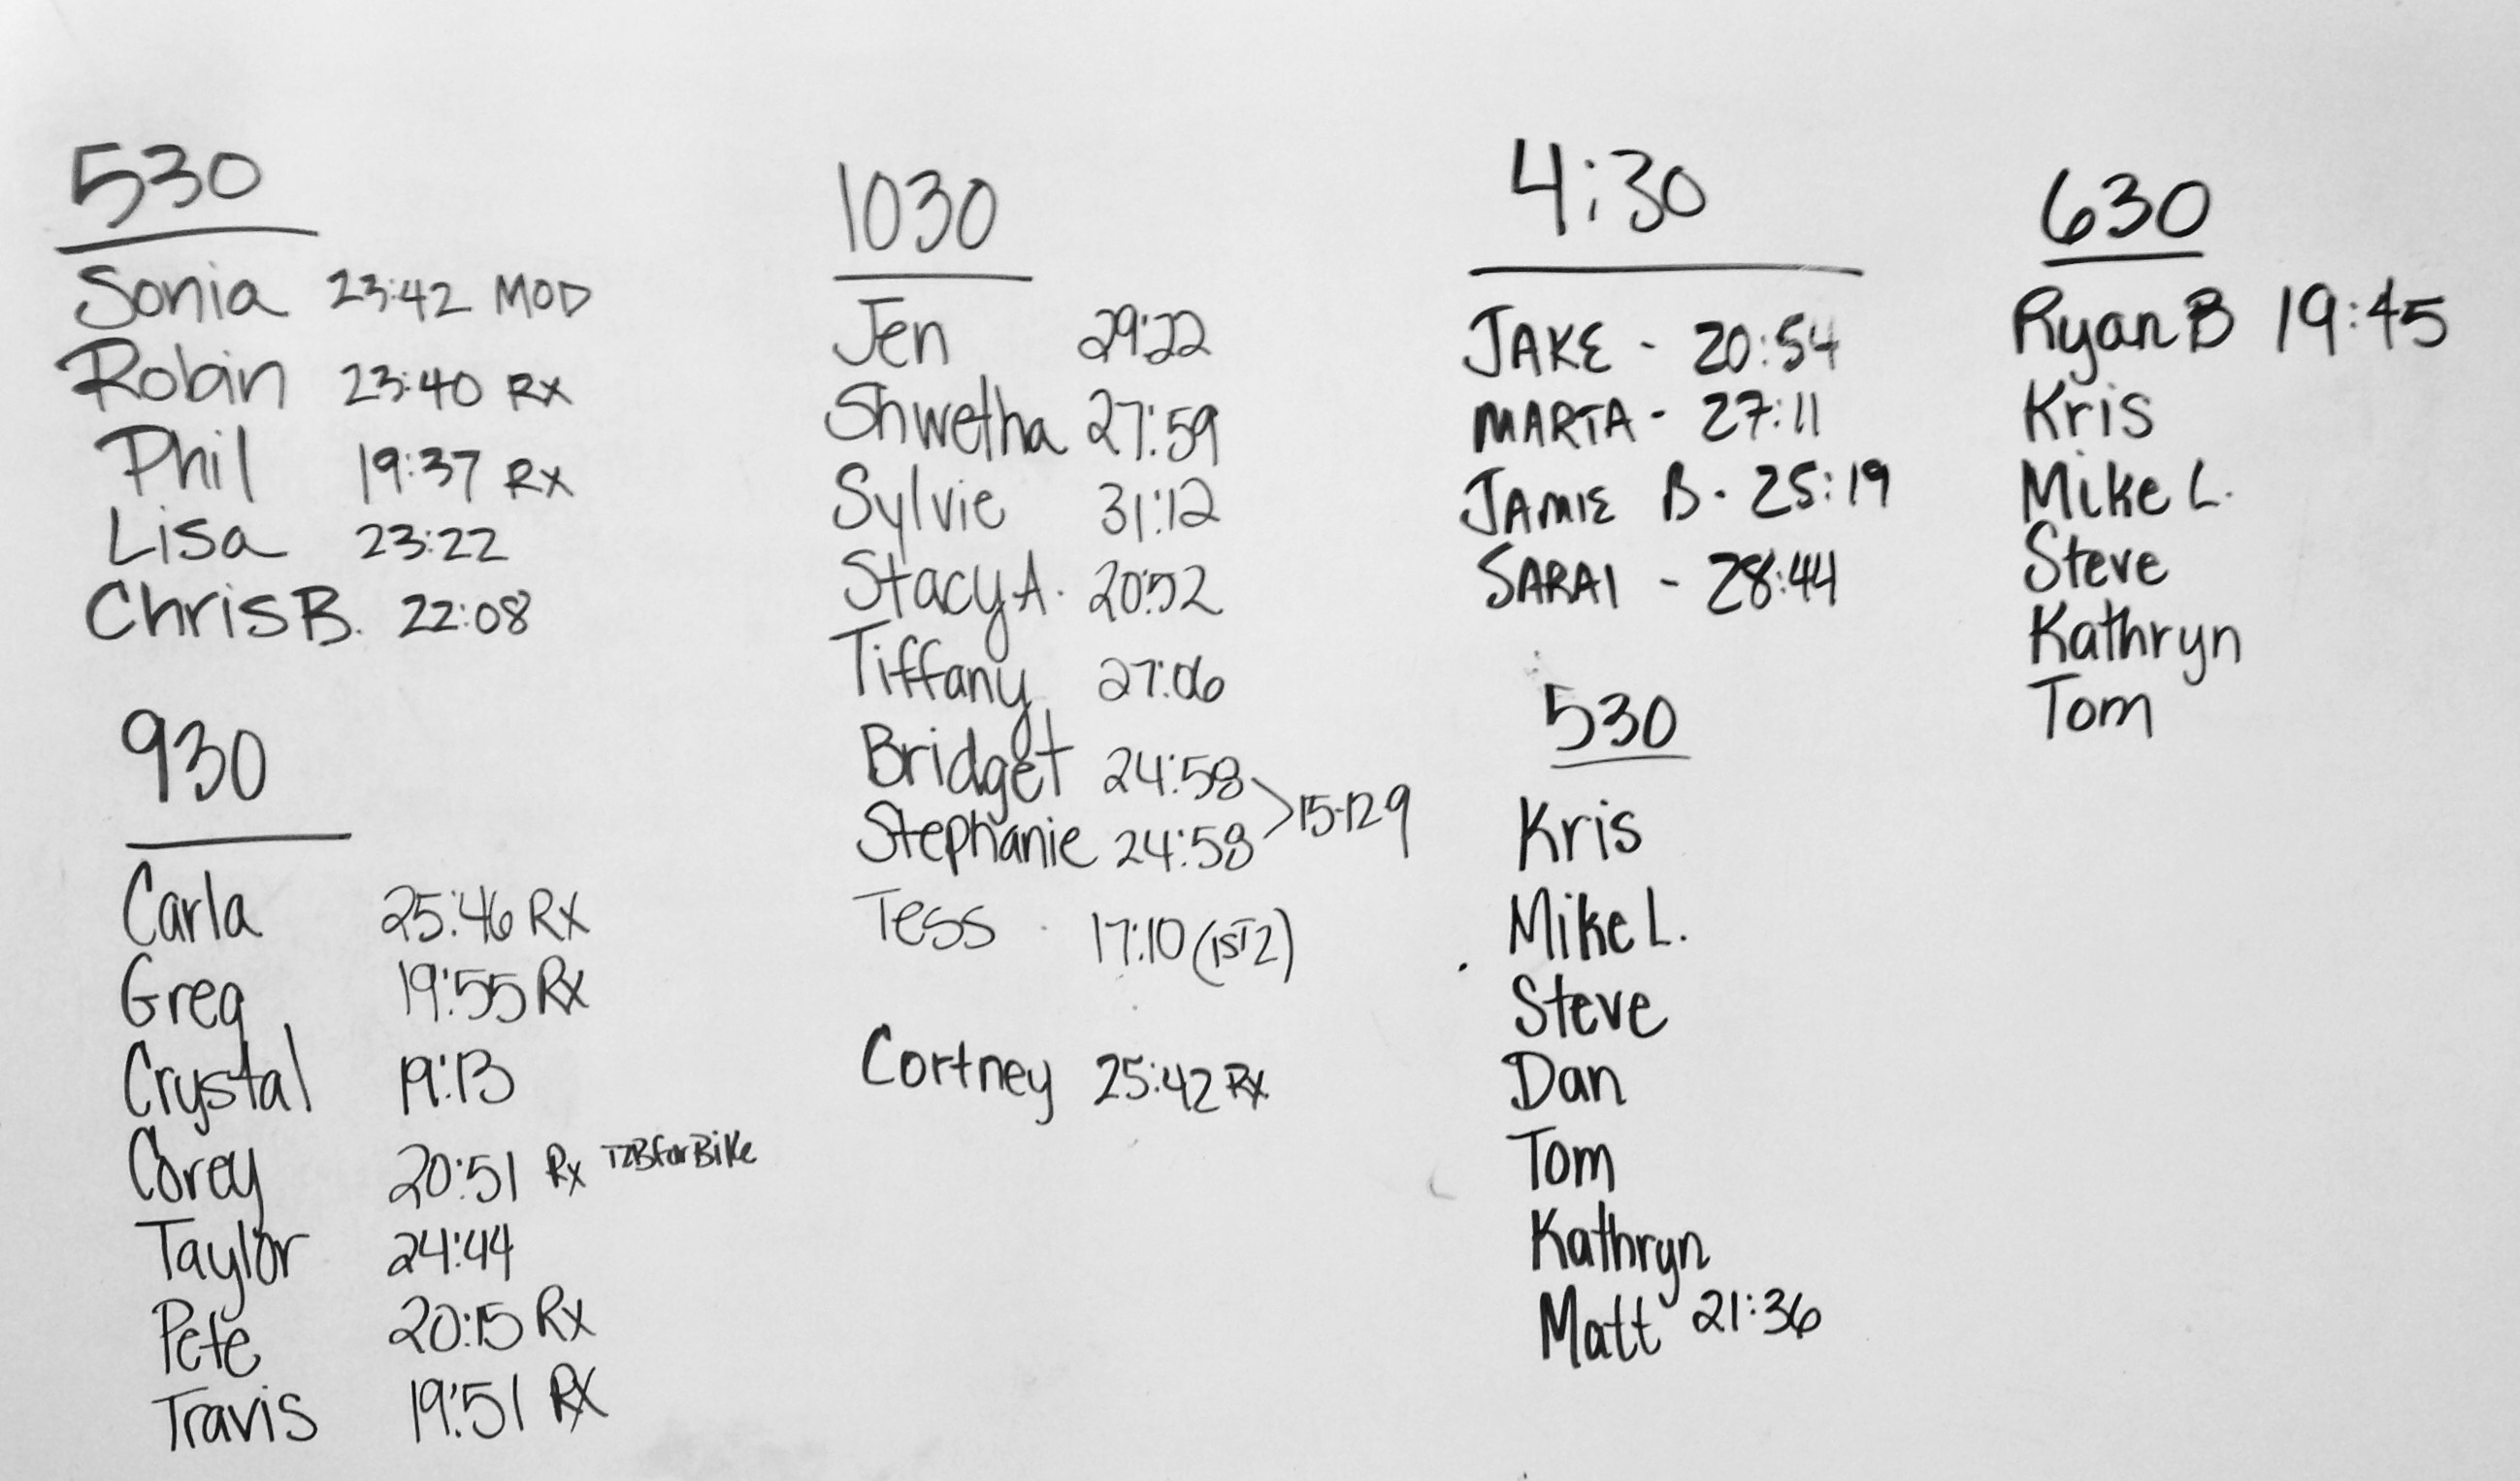 530
Sonia 23:42 MOD
Robin 23:40 RX
Phil 19:37 RX
Lisa 23:22
Chris B. 22:08
930
Carla 25:46 RX
Greg 19:55 RX
Crystal 19:13
Corey 20:51 RX T2B for Bike
Taylor 24:44
Pete 20:15 RX
Travis 19:51 RX
1030
Jen 29:22
Shwetha 27:59
Sylvie 31:12
Stacy A. 20:52
Tiffany 27:06
Bridget 24:58
Stephanie 24:58 >15-12-9
Tess 17:10 (1ST 2)
Cortney 25:42 RX
4:30
JAKE - 20:54
MARTA - 27:11
JAMIE B - 25:19
SARAI - 28:44
530
Kris
Mike L.
Steve
Dan
Tom
Kathryn
Matt 21:36
630
Ryan B 19:45
Kris
Mike L.
Steve
Kathryn
Tom